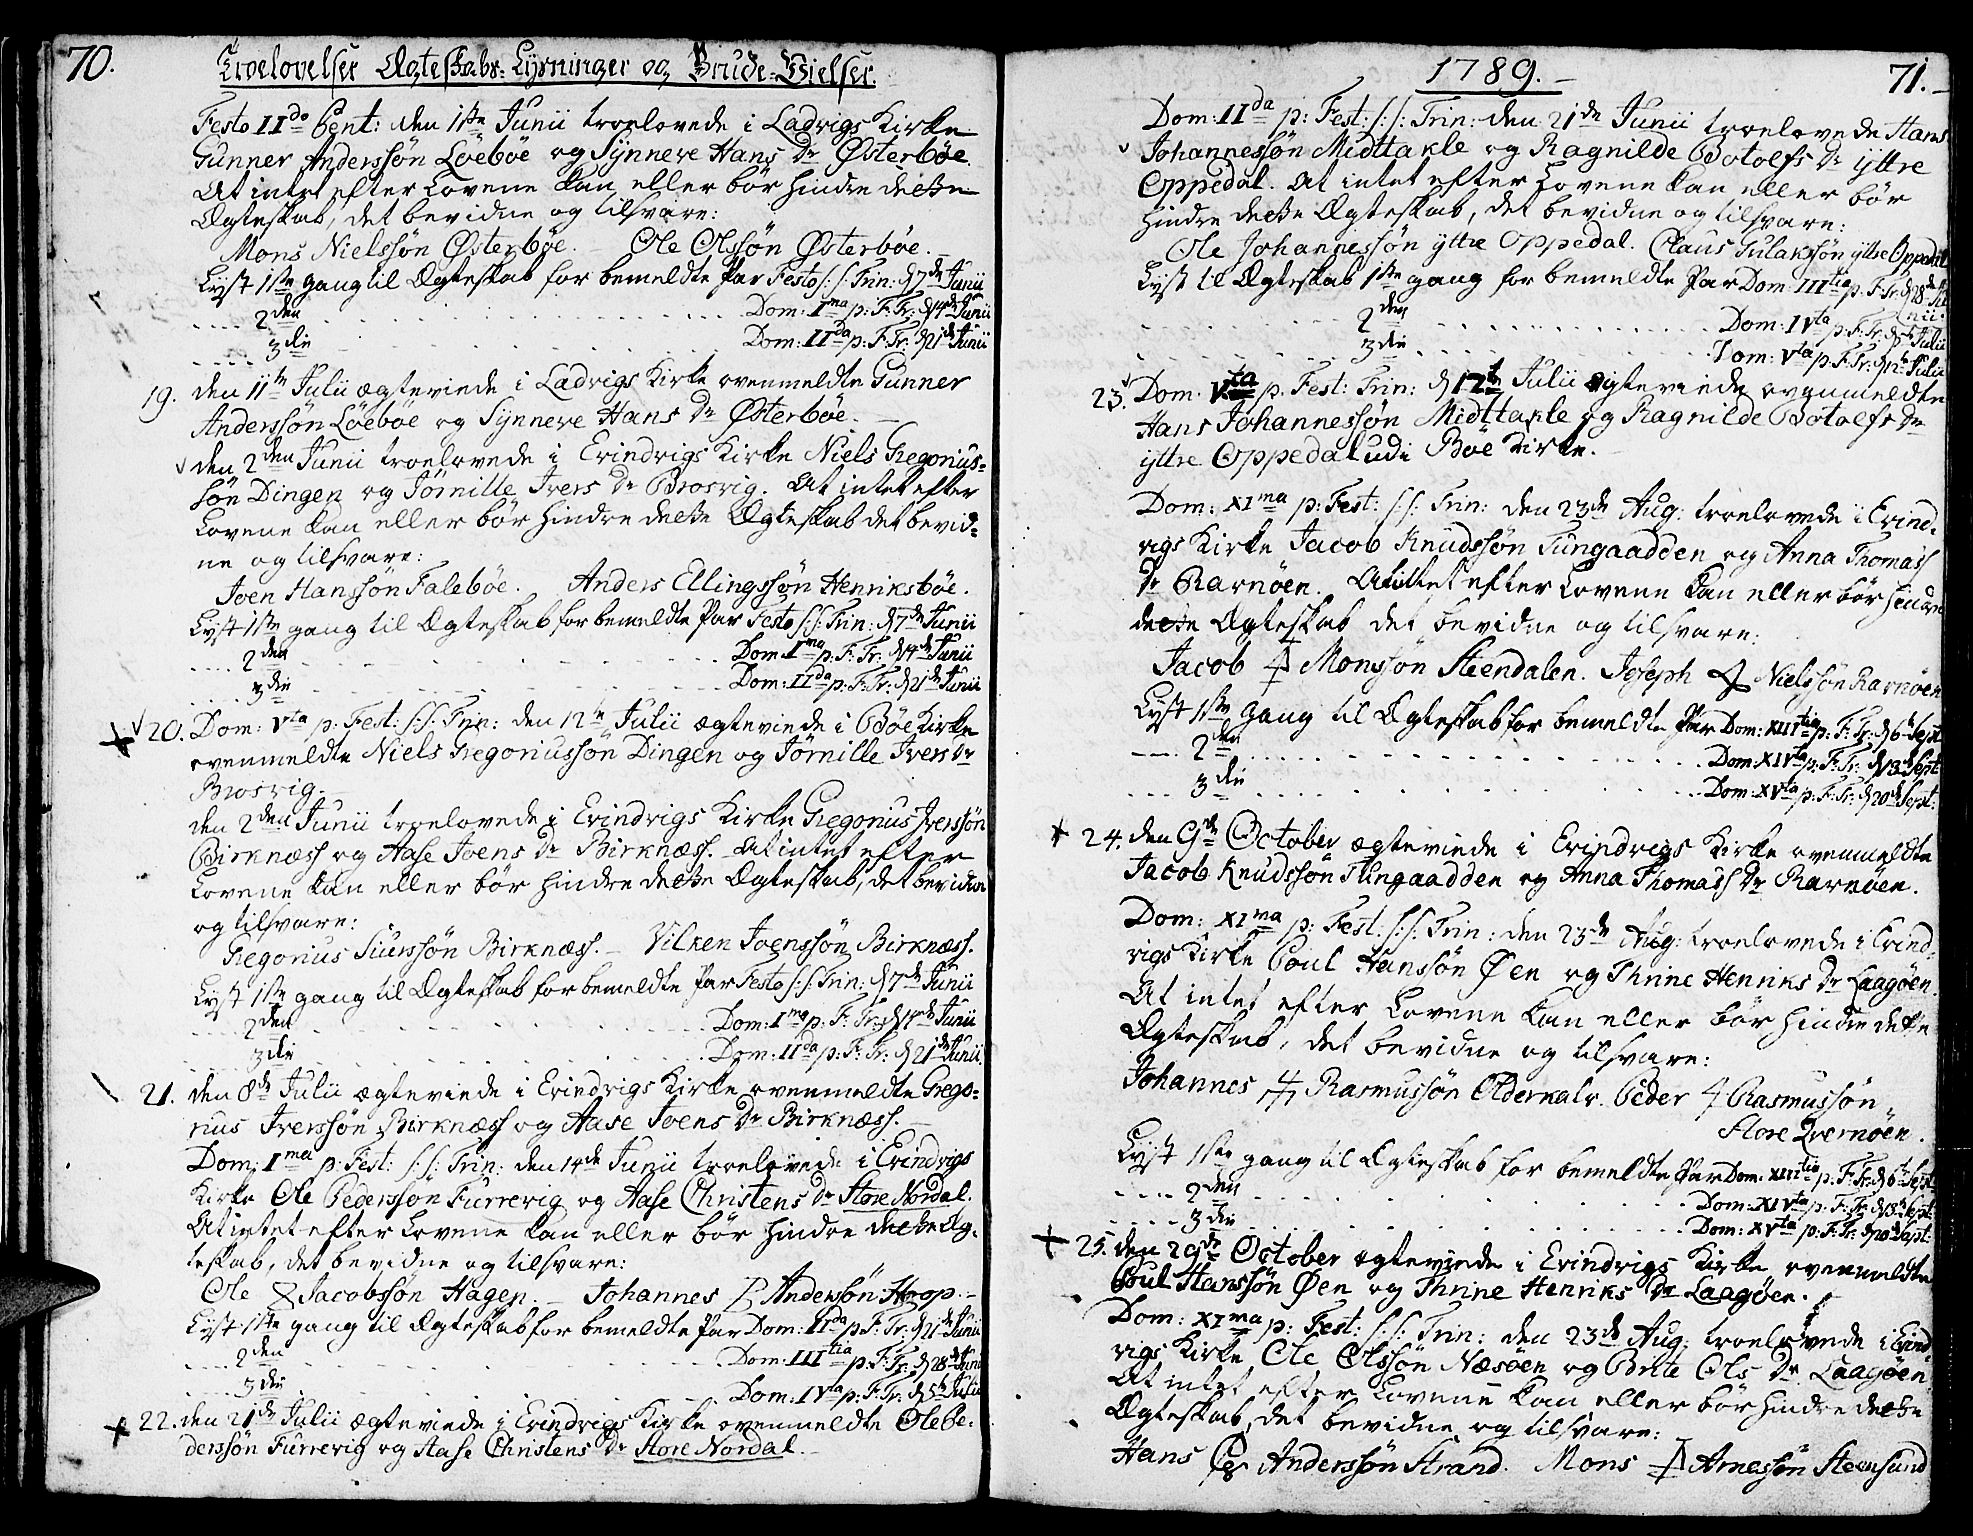 70.
Troelovelser Ægteskabs-Lysninger og Brude-Vielser.
Festo II do Pent: den 1ste Junii troelovede i Ladvigs Kirke
Gunner Anderssøn Löebøe og Synneve Hans Dr Østerbøe.
At intet efter Lovene kan eller bör hindre dette
Ægteskab, det bevidne og tilsvare:
Mons Nielssøn Østerbøe. - Ole Olssøn Østerbøe.
Lyst 1ste gang til Ægteskab for bemeldte Par Festo s:s: Trin: d 7de Junii
.... 2den ... Dom: I ma p: F: Tr: d 14de Junii
.... 3die ... Dom: II da p: F: Tr: d 21de Junii
19. den 11te Julii ægteviede i Ladvigs Kirke ovenmeldte Gunner
Anderssøn Löebøe og Synneve Hans Dr Østerbøe.
den 2den Junii troelovede i Evindvigs Kirke Niels Gregorius-
søn Dingen og Jörnille Ivers Dr Brosvig. At intet efter
Lovene kan eller bör hindre dette Ægteskab det bevid-
ne og tilsvare:
Joen Hanssøn Falebøe. Anders Ellingssøn Henriksbøe.
Lyst 1ste gang til Ægteskab for bemeldte Par Festo s:s: Trin: d 7de Junii
.... 2den ... Dom: I ma p: F: Tr: d 14de Junii
.... 3die ... Dom: II da p: F: Tr: d 21de Junii
20. Dom: V ta p: Fest: s:s: Trin: den 12te Julii ægteviede i Bøe Kirke
ovenmeldte Niels Gregoriussøn Dingen og Jörnille Ivers Dr
Brosvig.
den 2den Junii troelovede i Evindvigs Kirke Gregorius Iverssøn
Birknæss og Aase Joens Dr Birknæss. At intet efter
Lovene kan eller bör hindre dette Ægteskab, det bevidne
og tilsvare:
Gregorius Siurssøn Birknæss. - Vilken Joenssøn Birknæss.
Lyst 1ste gang til Ægteskab for bemeldte Par Festo s:s: Trin: d 7de Junii
.... 2den ... Dom: I ma p: F: Tr: d 14de Junii
.... 3die ... Dom: II da p: F: Tr: d 21de Junii.
21. den 8de Julii ægteviede i Evindvigs Kirke ovenmeldte Grego-
rius Iverssøn Birknæss og Aase Joens Dr Birknæss.
Dom: I ma p: Fest: s:s: Trin: den 14de Junii troelovede i Evindvigs
Kirke Ole Pederssøn Furrevig og Aase Christens Dr Store Nordal.
At intet efter Lovene kan eller bör hindre dette Æg-
teskab, det bevidne og tilsvare:
Ole Jacobssøn Hagen. - Johannes Anderssøn Hop. -
Lyst 1ste gang til Ægteskab for bemeldte Par Dom: II da p: F: Tr: d 21de Junii
.... 2den ... Dom: III tia p: F: Tr: d 28de Junii
.... 3die ... Dom: IV ta p: F: Tr: d 5te Julii
22. den 21de Julii ægteviede i Evindvigs Kirke ovenmeldte Ole Pe-
derssøn Furrevig og Aase Christens Dr Store Nordal.
1789.
71.
Dom: II da p: Fest: s:s: Trin: den 21de Junii troelovede Hans
Johannessøn Midttakle og Ragnilde Botolfs Dr Yttre
Oppedal. At intet efter Lovene kan eller bör
hindre dette Ægteskab, det bevidne og tilsvare:
Ole Johannessøn yttre Oppedal. Claus Gulakssøn yttre Oppedal
Lyst til Ægteskab 1ste gang for bemeldte Par Dom: III tia p: F: Tr: d 28de Ju-
nii.
.... 2den ... Dom: IV ta p: F: Tr: d 5te Julii
.... 3die ... Dom: V ta p: F: Tr: d 12te Julii
23. Dom. V ta p: Fest: Trin: d 12te Julii ægteviede ovenmeldte
Hans Johannessøn Midttakle og Ragnilde Botolfs Dr
yttre Oppedal udi Bøe Kirke.
Dom: XI ma p: Fest: s:s: Trin: den 23de Aug: troelovede i Evind-
vigs Kirke Jacob Knudssøn Tungaadden og Anna Thomass
Dr Ravnöen. At intet efter Lovene kan eller bör hindre
dette Ægteskab det bevidne og tilsvare:
Jacob Monssøn Steendalen. Joseph Nielssøn Ravnöen
Lyst 1ste gang til Ægteskab for bemeldte Par Dom: XIII tia p: F: Tr: d 6te Sept
.... 2den ... Dom: XIV ta p: F: Tr: d 13de Sept
.... 3die ... Dom: XV ta p: F: Tr: d 20de Sept:
24. den 9de October ægteviede i Evindvigs Kirke ovenmeldte
Jacob Knudssøn Tungaadden og Anna Thomass Dr Ravnöen.
Dom: XI ma p: Fest: s:s: Trin: den 23de Aug: troelovede i Evind-
vigs Kirke Poul Hanssøn Øen og Thrine Henriks Dr Laagöen.
At intet efter Lovene kan eller bör hindre dette
Ægteskab, det bevidne og tilsvare:
Johannes Rasmussøn Oldervalr. Peder Rasmussøn
Store Qvernöen.
Lyst 1ste gang til Ægteskab for bemeldte Par Dom: XIII tia p: F: Tr: d 6te Sept
.... 2den ... Dom: XIV ta p: F: Tr: d 13de Sept:
.... 3die ... Dom: XV ta p: F: Tr: d 20de Sept:
25. den 29de October ægteviede i Evindvigs Kirke ovenmeldte
Poul Hanssøn Øen og Thrine Henriks Dr Laagöen.
Dom: XI ma p: Fest: s:s: Trin: den 23de Aug: troelovede i Evind-
vigs Kirke Ole Olssøn Næsöen og Brite Ols Dr Laagöen
At intet efter Lovene kan eller bör hindre dette
Ægteskab, det bevidne og tilsvare:
Hans Anderssøn Strand. Mons Arnessøn Steensund